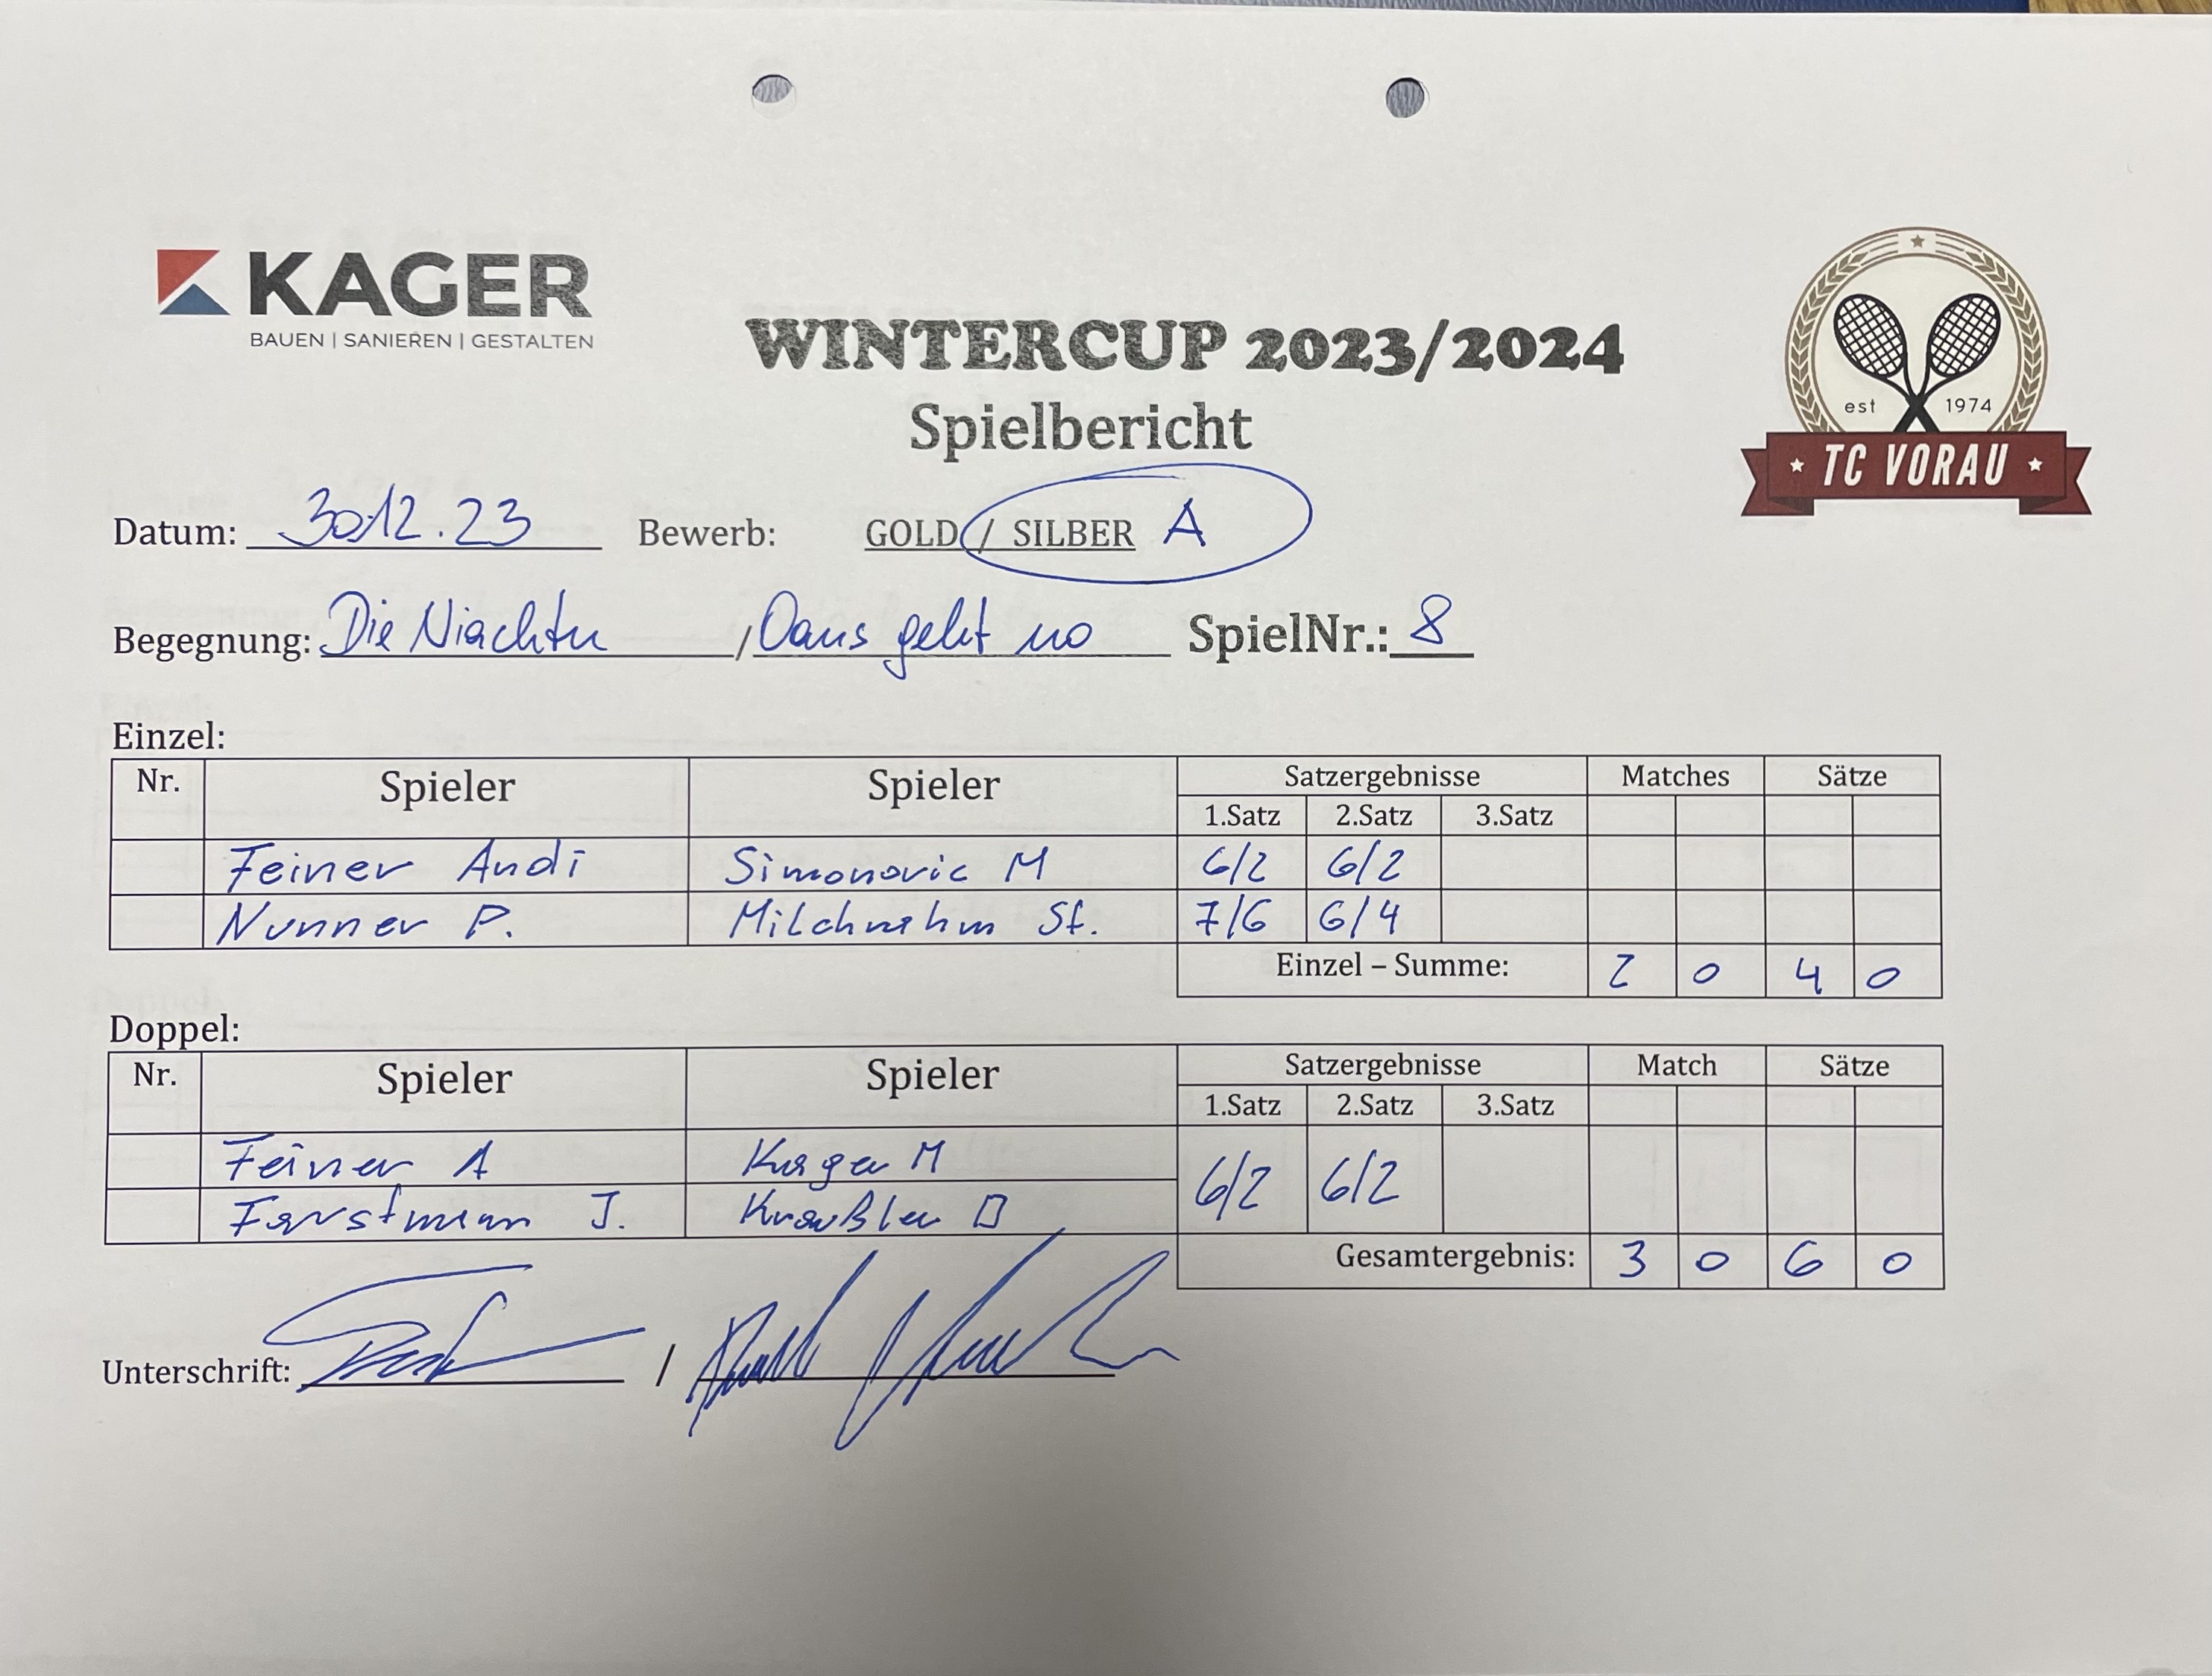 KAGER
BAUEN | SANIEREN | GESTALTEN
WINTERCUP 2023/2024
Spielbericht
est 1974
TC VORAU
Datum: 30.12.23 Bewerb: GOLD / SILBER A
Begegnung: Die Niachtn / Oans geht no SpielNr.: 8
Einzel:
Nr. Spieler Spieler Satzergebnisse Matches Sätze
1.Satz 2.Satz 3.Satz
Feiner Andi Simonovic M 6/2 6/2
Nunner P. Milchrahm St. 7/6 6/4
Einzel – Summe: 2 0 4 0
Doppel:
Nr. Spieler Spieler Satzergebnisse Match Sätze
1.Satz 2.Satz 3.Satz
Feiner A Kager M 6/2 6/2
Forstmann J. Kraußler D
Gesamtergebnis: 3 0 6 0
Unterschrift: /